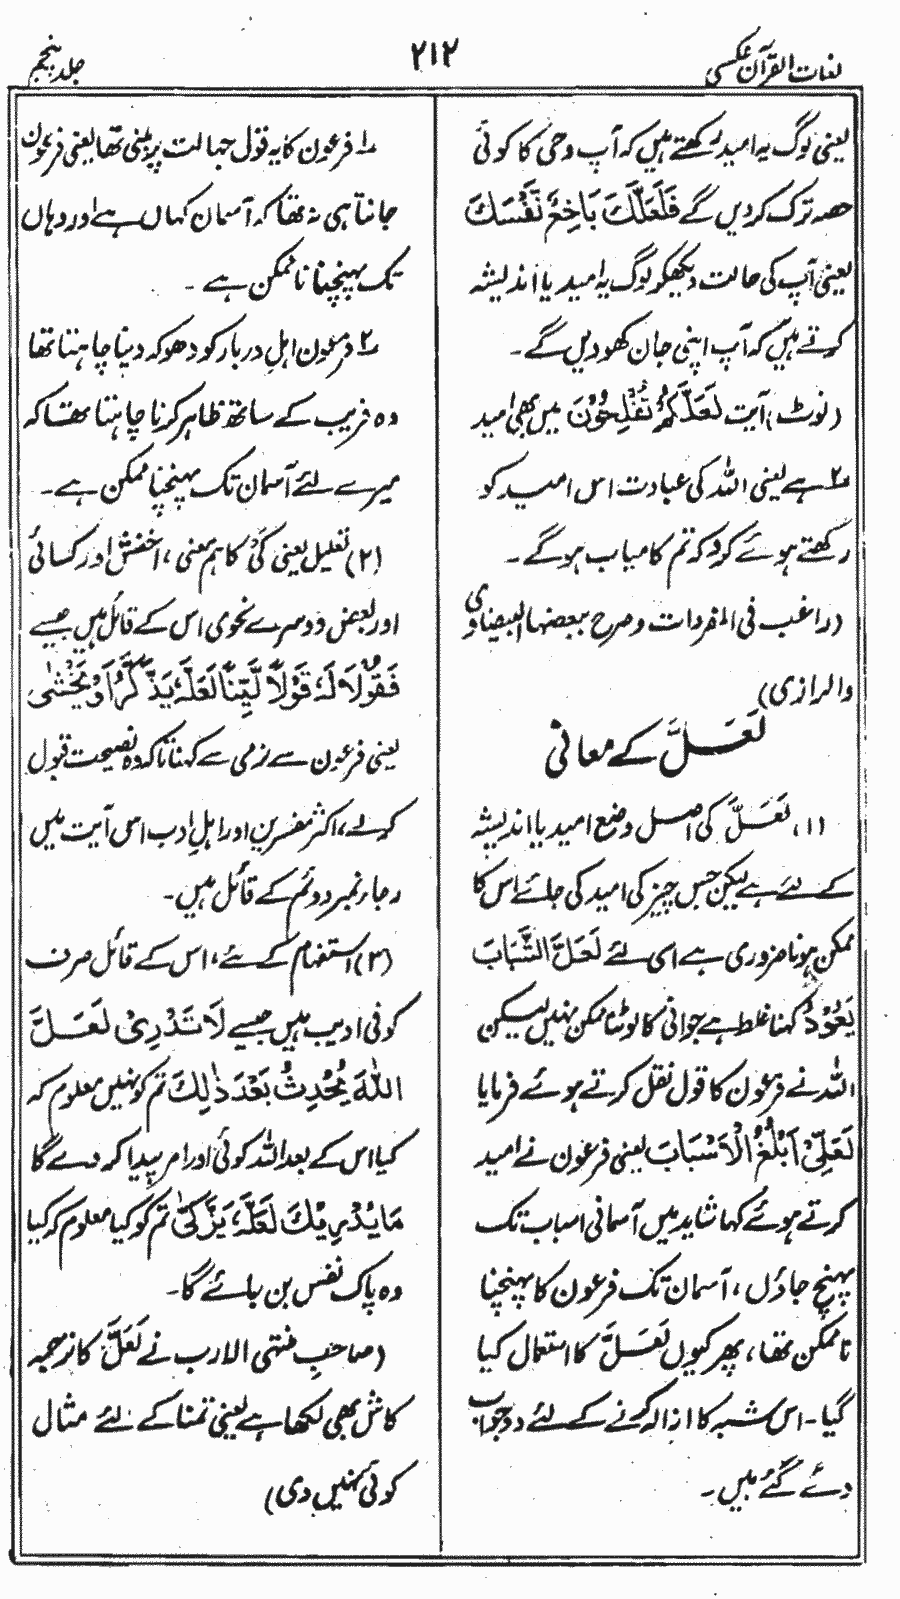 لغات القرآن عکسی
۲۱۲
جلد پنجم
یعنی لوگ یہ امید رکھتے ہیں کہ آپ وحی کا کوئی
حصہ ترک کردیں گے فَلَعَلَّكَ بَاخِعٌ نَّفْسَكَ
یعنی آپ کی حالت دیکھکر لوگ یہ امید یا اندیشہ
کرتے ہیں کہ آپ اپنی جان کھو دیں گے۔
(نوٹ) آیت لَعَلَّكُمْ تُفْلِحُوْنَ میں بھی امید
۲ ہے یعنی اللہ کی عبادت اس امید کو
رکھتے ہوئے کرو کہ تم کامیاب ہو گے۔
(راغب فی المفردات و صرح ببعضہا البیضاوی
والرازی)
لَعَلَّ کے معانی
(۱) لَعَلَّ کی اصل وضع امید یا اندیشہ
کے لئے ہے لیکن جس چیز کی امید کی جائے اس کا
ممکن ہونا ضروری ہے اسی لئے لَعَلَّ الشَّبَابَ
يَعُوْدُ کہنا غلط ہے جوانی کا لوٹنا ممکن نہیں لیکن
اللہ نے فرعون کا قول نقل کرتے ہوئے فرمایا
لَعَلِّيْ اَبْلُغُ الْاَسْبَابَ یعنی فرعون نے امید
کرتے ہوئے کہا شاید میں آسمانی اسباب تک
پہنچ جاؤں، آسمان تک فرعون کا پہنچنا
ناممکن تھا، پھر کیوں لَعَلَّ کا استعمال کیا
گیا۔ اس شبہ کا ازالہ کرنے کے لئے دو جواب
دئے گئے ہیں۔
۱ فرعون کا یہ قول جہالت پر مبنی تھا یعنی فرعون
جانتا ہی نہ تھا کہ آسمان کہاں ہے اور وہاں
تک پہنچنا ناممکن ہے۔
۲ فرعون اہلِ دربار کو دھوکہ دینا چاہتا تھا
وہ فریب کے ساتھ ظاہر کرنا چاہتا تھا کہ
میرے لئے آسمان تک پہنچنا ممکن ہے۔
(۲) تعلیل یعنی کَیْ کا ہم معنی، اخفش اور کسائی
اور بعض دوسرے نحوی اس کے قائل ہیں جیسے
فَقُوْلَا لَهٗ قَوْلًا لَّيِّنًا لَّعَلَّهٗ يَذَّكَّرُ اَوْ يَخْشٰى
یعنی فرعون سے نرمی سے کہنا تاکہ وہ نصیحت قبول
کرلے، اکثر مفسرین اور اہلِ ادب اس آیت میں
رجاء نمبر دوئم کے قائل ہیں۔
(۳) استفہام کے لئے، اس کے قائل صرف
کوفی ادیب ہیں جیسے لَا تَدْرِيْ لَعَلَّ
اللّٰهَ يُحْدِثُ بَعْدَ ذٰلِكَ تم کو نہیں معلوم کہ
کیا اس کے بعد اللہ کوئی اور امر پیدا کردے گا
مَا يُدْرِيْكَ لَعَلَّهٗ يَزَّكّٰى تم کو کیا معلوم کہ کیا
وہ پاک نفس بن جائے گا۔
(صاحبِ منتہی الارب نے لَعَلَّ کا ترجمہ
کاش بھی لکھا ہے یعنی تمنا کے لئے مثال
کوئی نہیں دی)